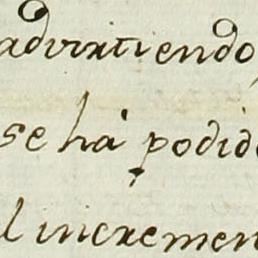 advirtiendo,
se há podido
l incremen